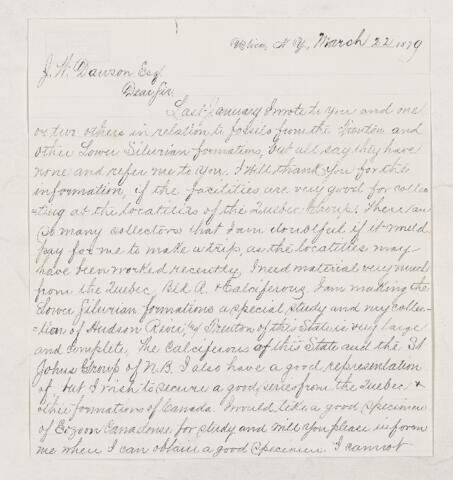 Utica, N.Y., March 22 1879
J. W. Dawson Esq
Dear Sir
Last January I wrote to you and one
or two others in relation to fossils from the Trenton and
other Lower Silurian formations, but all say they have
none and refer me to you. I will thank you for the
information, if the facilities are very good for collec-
-ting at the localities of the Quebec Group. There are
so many collectors that I am doubtful if it would
pay for me to make a trip, as the localities may
have been worked recently, I need material very much
from the Quebec, & Calciferous. I am making the
Lower Silurian formations a special study and my collec-
-tion of Hudson River & Trenton of this State is very large
and complete, The Calciferous of this State and the St
Johns Group of N.B. I also have a good representation
of, but I wish to secure a good series from the Quebec &
other formations of Canada. I would like a good specimen
of Eozoon Canadense for study and will you please inform
me where I can obtain a good specimen. I cannot